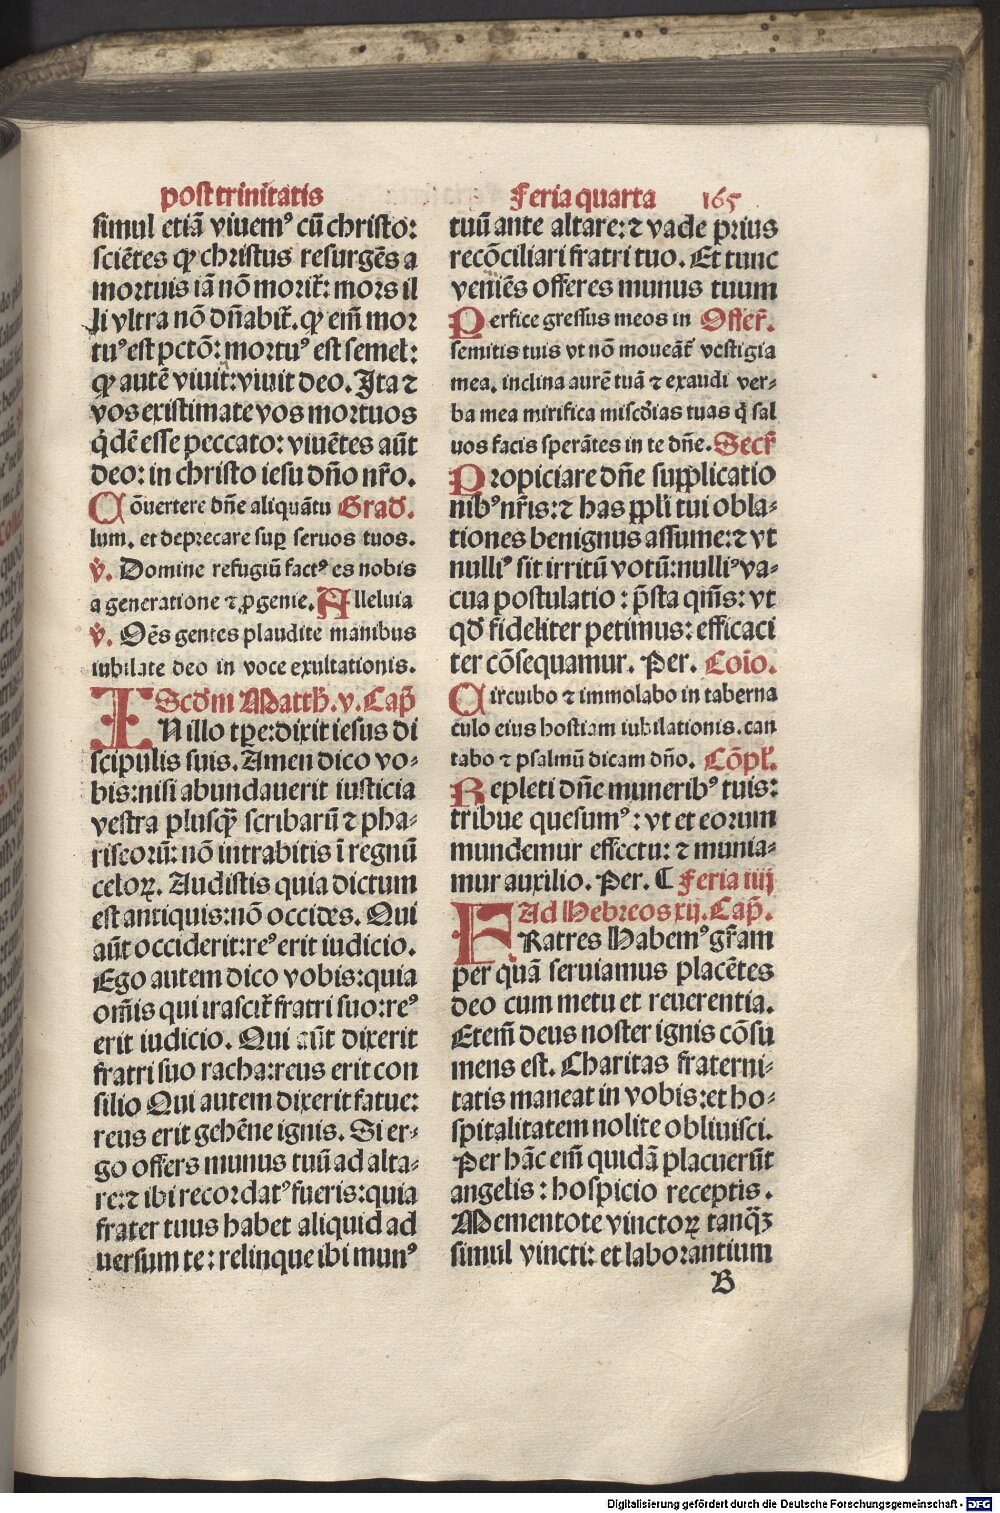 post trinitatis
simul etiã viuemꝰ cũ christo:
sciẽtes ꝙ christus resurgẽs a
mortuis iã nõ moriť: mors il
li vltra nõ dñabiť. ꝙ em̃ mor
tuꝰ est pctõ: mortuꝰ est semel:
ꝙ autẽ viuit: viuit deo. Ita ⁊
vos existimate vos mortuos
q̇dẽ esse peccato: viuẽtes aũt
deo: in christo iesu dño nr̃o.
Cõuertere dñe aliquãtu Grad̃.
lum. et deprecare suꝑ seruos tuos.
℣. Domine refugiũ factꝰ es nobis
a generatione ⁊ ꝓgenie. Alleluia
℣. Oẽs gentes plaudite manibus
iubilate deo in voce exultationis.
Scdm̃ Matth. v. Cap̃
IN illo tꝑe: dixit iesus di
scipulis suis. Amen dico vo-
bis: nisi abundauerit iusticia
vestra plusq̃ scribarũ ⁊ pha-
riseorũ: nõ intrabitis ĩ regnũ
celoꝝ. Audistis quia dictum
est antiquis: nõ occides. Qui
aũt occiderit: reꝰ erit iudicio.
Ego autem dico vobis: quia
om̃is qui irasciť fratri suo: reꝰ
erit iudicio. Qui aũt dixerit
fratri suo racha: reus erit con
silio Qui autem dixerit fatue:
reus erit gehẽne ignis. Si er-
go offers munus tuũ ad alta-
re: ⁊ ibi recordatꝰ fueris: quia
frater tuus habet aliquid ad
uersum te: relinque ibi munꝰ
Feria quarta 165
tuũ ante altare: ⁊ vade prius
recõciliari fratri tuo. Et tunc
veniẽs offeres munus tuum
Perfice gressus meos in Offer̃.
semitis tuis vt nõ moueãť vestigia
mea. inclina aurẽ tuã ⁊ exaudi ver-
ba mea mirifica miscõias tuas q̇ sal
uos facis sperãtes in te dñe. Secr̃
Propiciare dñe supplicatio
nibꝰ nr̃is: ⁊ has ppl̃i tui obla-
tiones benignus assume: ⁊ vt
nulliꝰ sit irritũ votũ: nulliꝰ va-
cua postulatio: p̃sta qm̃s: vt
qd̃ fideliter petimus: efficaci
ter cõsequamur. Per. Coĩo.
Circuibo ⁊ immolabo in taberna
culo eius hostiam iubilationis. can
tabo ⁊ psalmũ dicam dño. Cõpł.
Repleti dñe muneribꝰ tuis:
tribue quesumꝰ: vt et eorum
mundemur effectu: ⁊ munia-
mur auxilio. Per. ¶ Feria iiij
Ad Hebreos xij. Cap̃.
FRatres Habemꝰ gr̃am
per quã seruiamus placẽtes
deo cum metu et reuerentia.
Etem̃ deus noster ignis cõsu
mens est. Charitas fraterni-
tatis maneat in vobis: et ho-
spitalitatem nolite obliuisci.
Per hãc em̃ quidã placuerũt
angelis: hospicio receptis.
Mementote vinctoꝝ tanq̃ꝫ
simul vincti: et laborantium
B
Digitalisierung gefördert durch die Deutsche Forschungsgemeinschaft - DFG